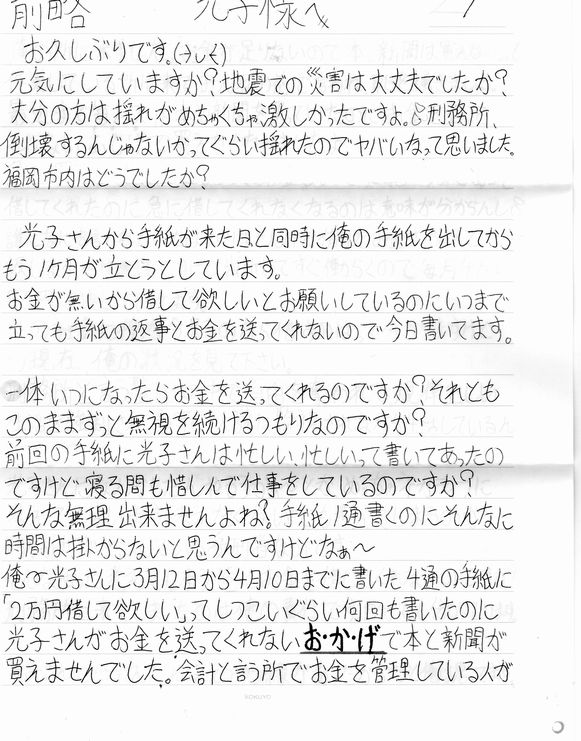 前略 光子様へ 1
お久しぶりです。(^し^)
元気にしていますか?地震での災害は大丈夫でしたか?
大分の方は揺れがめちゃくちゃ激しかったですよ。刑務所、
倒壊するんじゃないかってぐらい揺れたのでヤバいなって思いました。
福岡市内はどうでしたか?
光子さんから手紙が来た日と同時に俺の手紙を出してから
もう1ヶ月が立とうとしています。
お金が無いから借して欲しいとお願いしているのにいつまで
立っても手紙の返事とお金を送ってくれないので今日書いてます。
一体いつになったらお金を送ってくれるのですか?それとも
このままずっと無視を続けるつもりなのですか?
前回の手紙に光子さんは忙しい、忙しいって書いてあったの
ですけど寝る間も惜しんで仕事をしているのですか?
そんな無理出来ませんよね?手紙1通書くのにそんなに
時間は掛からないと思うんですけどなぁ〜
俺が光子さんに3月12日から4月10日までに書いた4通の手紙に
「2万円借して欲しい」ってしつこいぐらい何回も書いたのに
光子さんがお金を送ってくれないお・か・げで本と新聞が
買えませんでした。会計と言う所でお金を管理している人が
KOKUYO